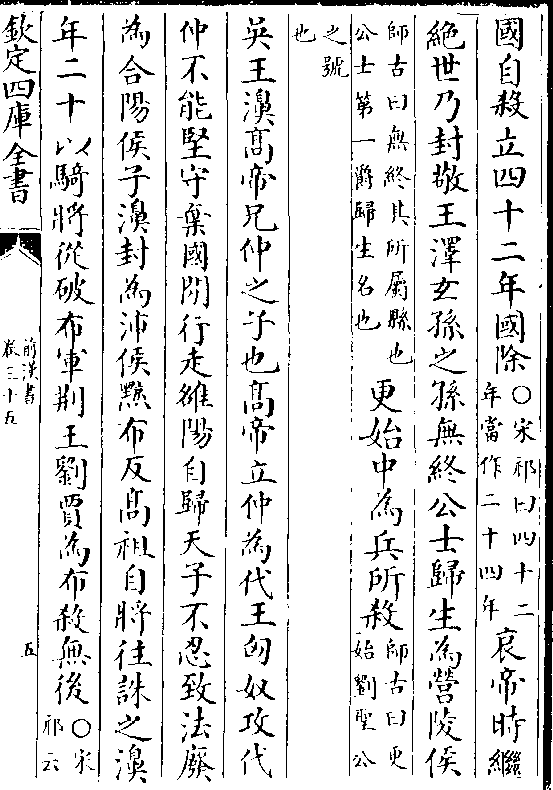 國自殺立四十二年國除○宋祁曰四十二年當作二十四年哀帝時繼
絶世乃封敬王澤玄孫之孫無終公士歸生為營陵侯
師古曰無終其所屬縣也公士第一爵歸生名也更始中為兵所殺師古曰更始劉聖公
之號也
吳王濞髙帝兄仲之子也髙帝立仲為代王匈奴攻代
仲不能堅守棄國間行走雒陽自歸天子不忍致法廢
為合陽侯子濞封為沛侯黥布反髙祖自將往誅之濞
年二十以騎將從破布軍荆王劉賈為布殺無後○宋祁云
欽定四庫全書
前漢書
卷三十五
五